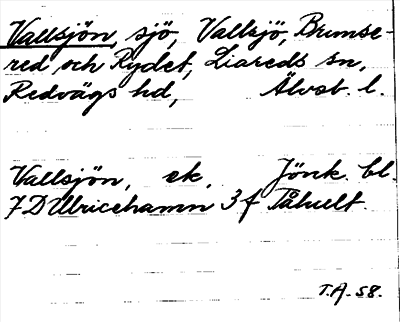 Vallsjön, sjö, Vallsjö, Brunse-
red, och Rydet, Liareds sn,
Redvägs hd, Älvsb. l.
Vallsjön, ek, Jönk. bl.
7 D Ulricehamn 3 f Tåhult.
T.A. 58.